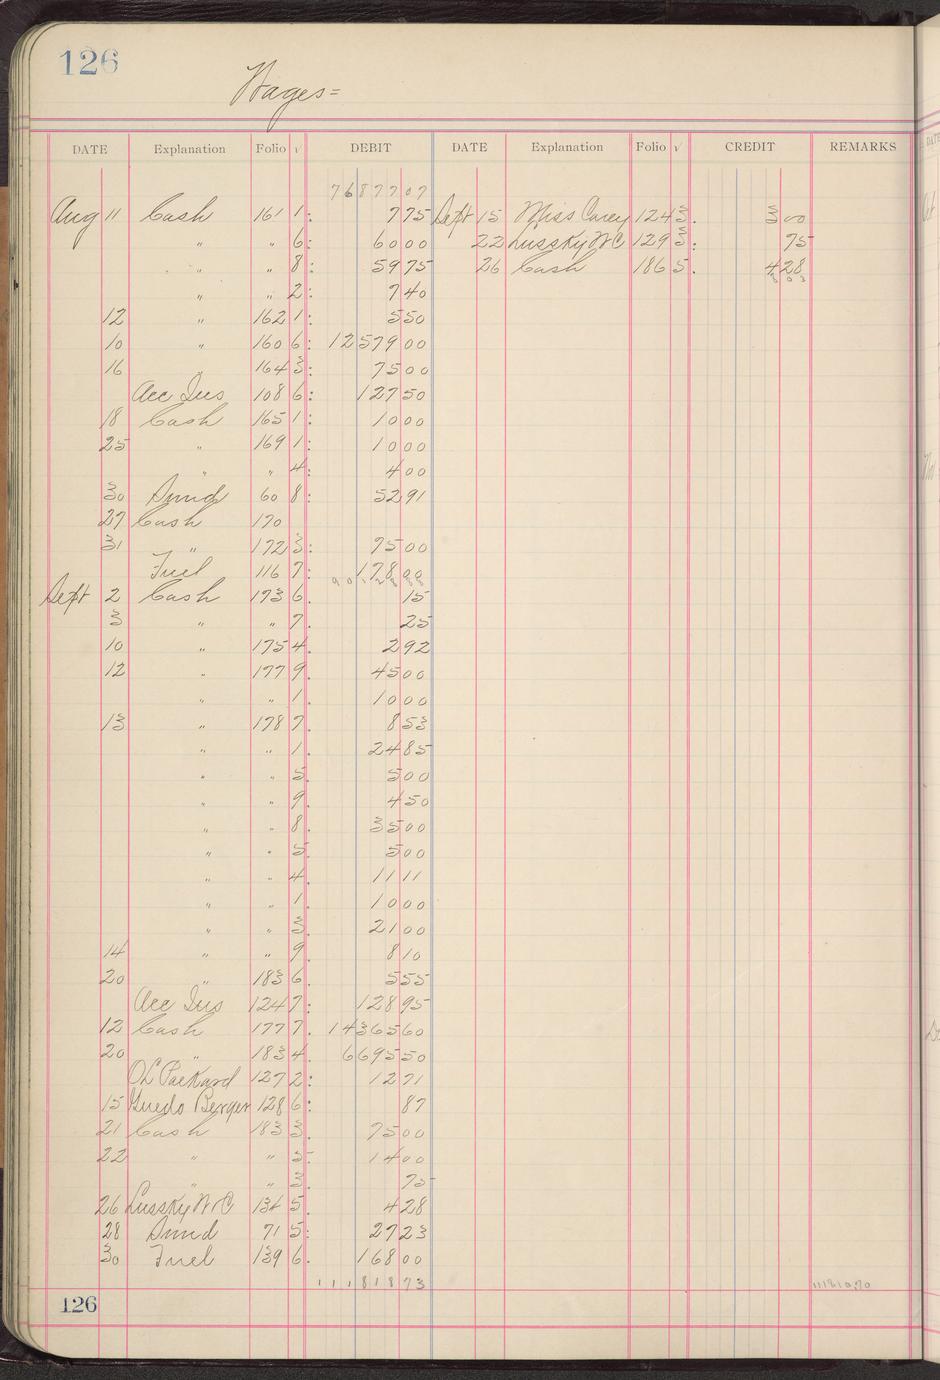 126
Wages=
DATE Explanation Folio √ DEBIT DATE Explanation Folio √ CREDIT REMARKS
7687707
Aug 11 Cash 161 1: 775 Sept 15 Miss Carey 124 3. 300
" " 6: 6000 22 Lussky W C 129 3: 75
" " 8: 5975 26 Cash 186 5. 428
" " 2: 740 803
12 " 162 1: 550
10 " 160 6: 1257900
16 " 164 3: 7500
Acc Ins 108 6: 12750
18 Cash 165 1: 1000
25 " 169 1: 1000
" " 4: 400
30 Sund 60 8: 5291
27 Cash 170
31 " 172 3: 7500
Fuel 116 7: 17800
Sept 2 Cash 173 6. 15
3 " " 7. 25
10 " 175 4. 292
12 " 177 9. 4500
" " 1. 1000
13 " 178 7. 853
" " 1. 2485
" " 5. 500
" " 9. 450
" " 8. 3500
" " 5. 500
" " 4. 1111
" " 1. 1000
" " 3. 2100
14 " " 9. 810
20 " 183 6. 555
Acc Ins 124 7: 12895
12 Cash 177 7. 1436560
20 " 183 4. 669550
OL Packard 127 2: 1271
15 Guedo Berger 128 6: 87
21 Cash 183 3. 7500
22 " " 5. 1400
" " 3. 75
26 Lussky W C 134 5. 428
28 Sund 71 5: 2723
30 Fuel 139 6. 16800
11181873
126